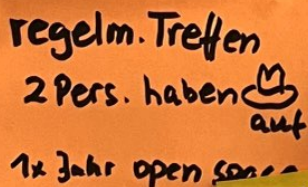 regelm. Treffen
2 Pers. haben
auf
1x Jahr open space